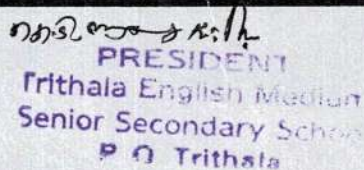 PRESIDENT
Trithala English Medium
Senior Secondary Schoo
P O Trithala